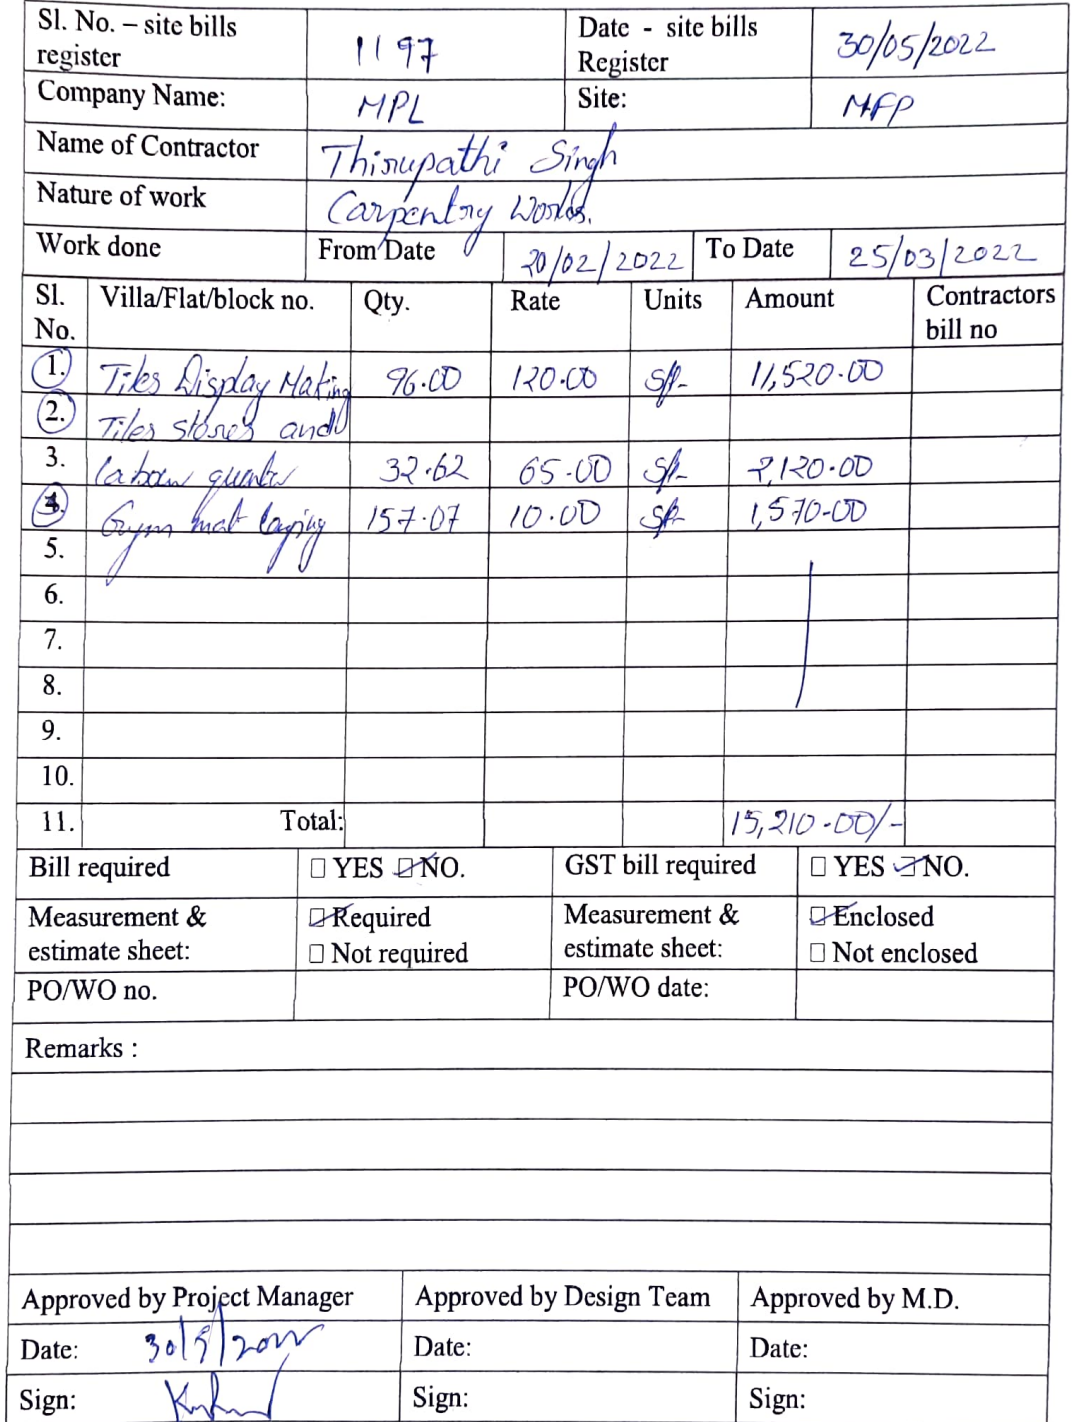 Sl. No. – site bills register 1197 Date - site bills Register 30/05/2022
Company Name: MPL Site: MFP
Name of Contractor Thirupathi Singh
Nature of work Carpentry Works.
Work done From Date 20/02/2022 To Date 25/03/2022
Sl. No. Villa/Flat/block no. Qty. Rate Units Amount Contractors bill no
1. Tiles Display Making 96.00 120.00 11,520.00
2. Tiles stores and
3. labour 32.62 65.00 2,120.00
4. Gym mat laying 157.07 10.00 1,570-00
5.
6.
7.
8.
9.
10.
11. Total: 15,210.00/-
Bill required YES NO. GST bill required YES NO.
Measurement & estimate sheet: Required Not required Measurement & estimate sheet: Enclosed Not enclosed
PO/WO no. PO/WO date:
Remarks :
Approved by Project Manager Approved by Design Team Approved by M.D.
Date: 30/5/2022 Date: Date:
Sign: Sign: Sign: